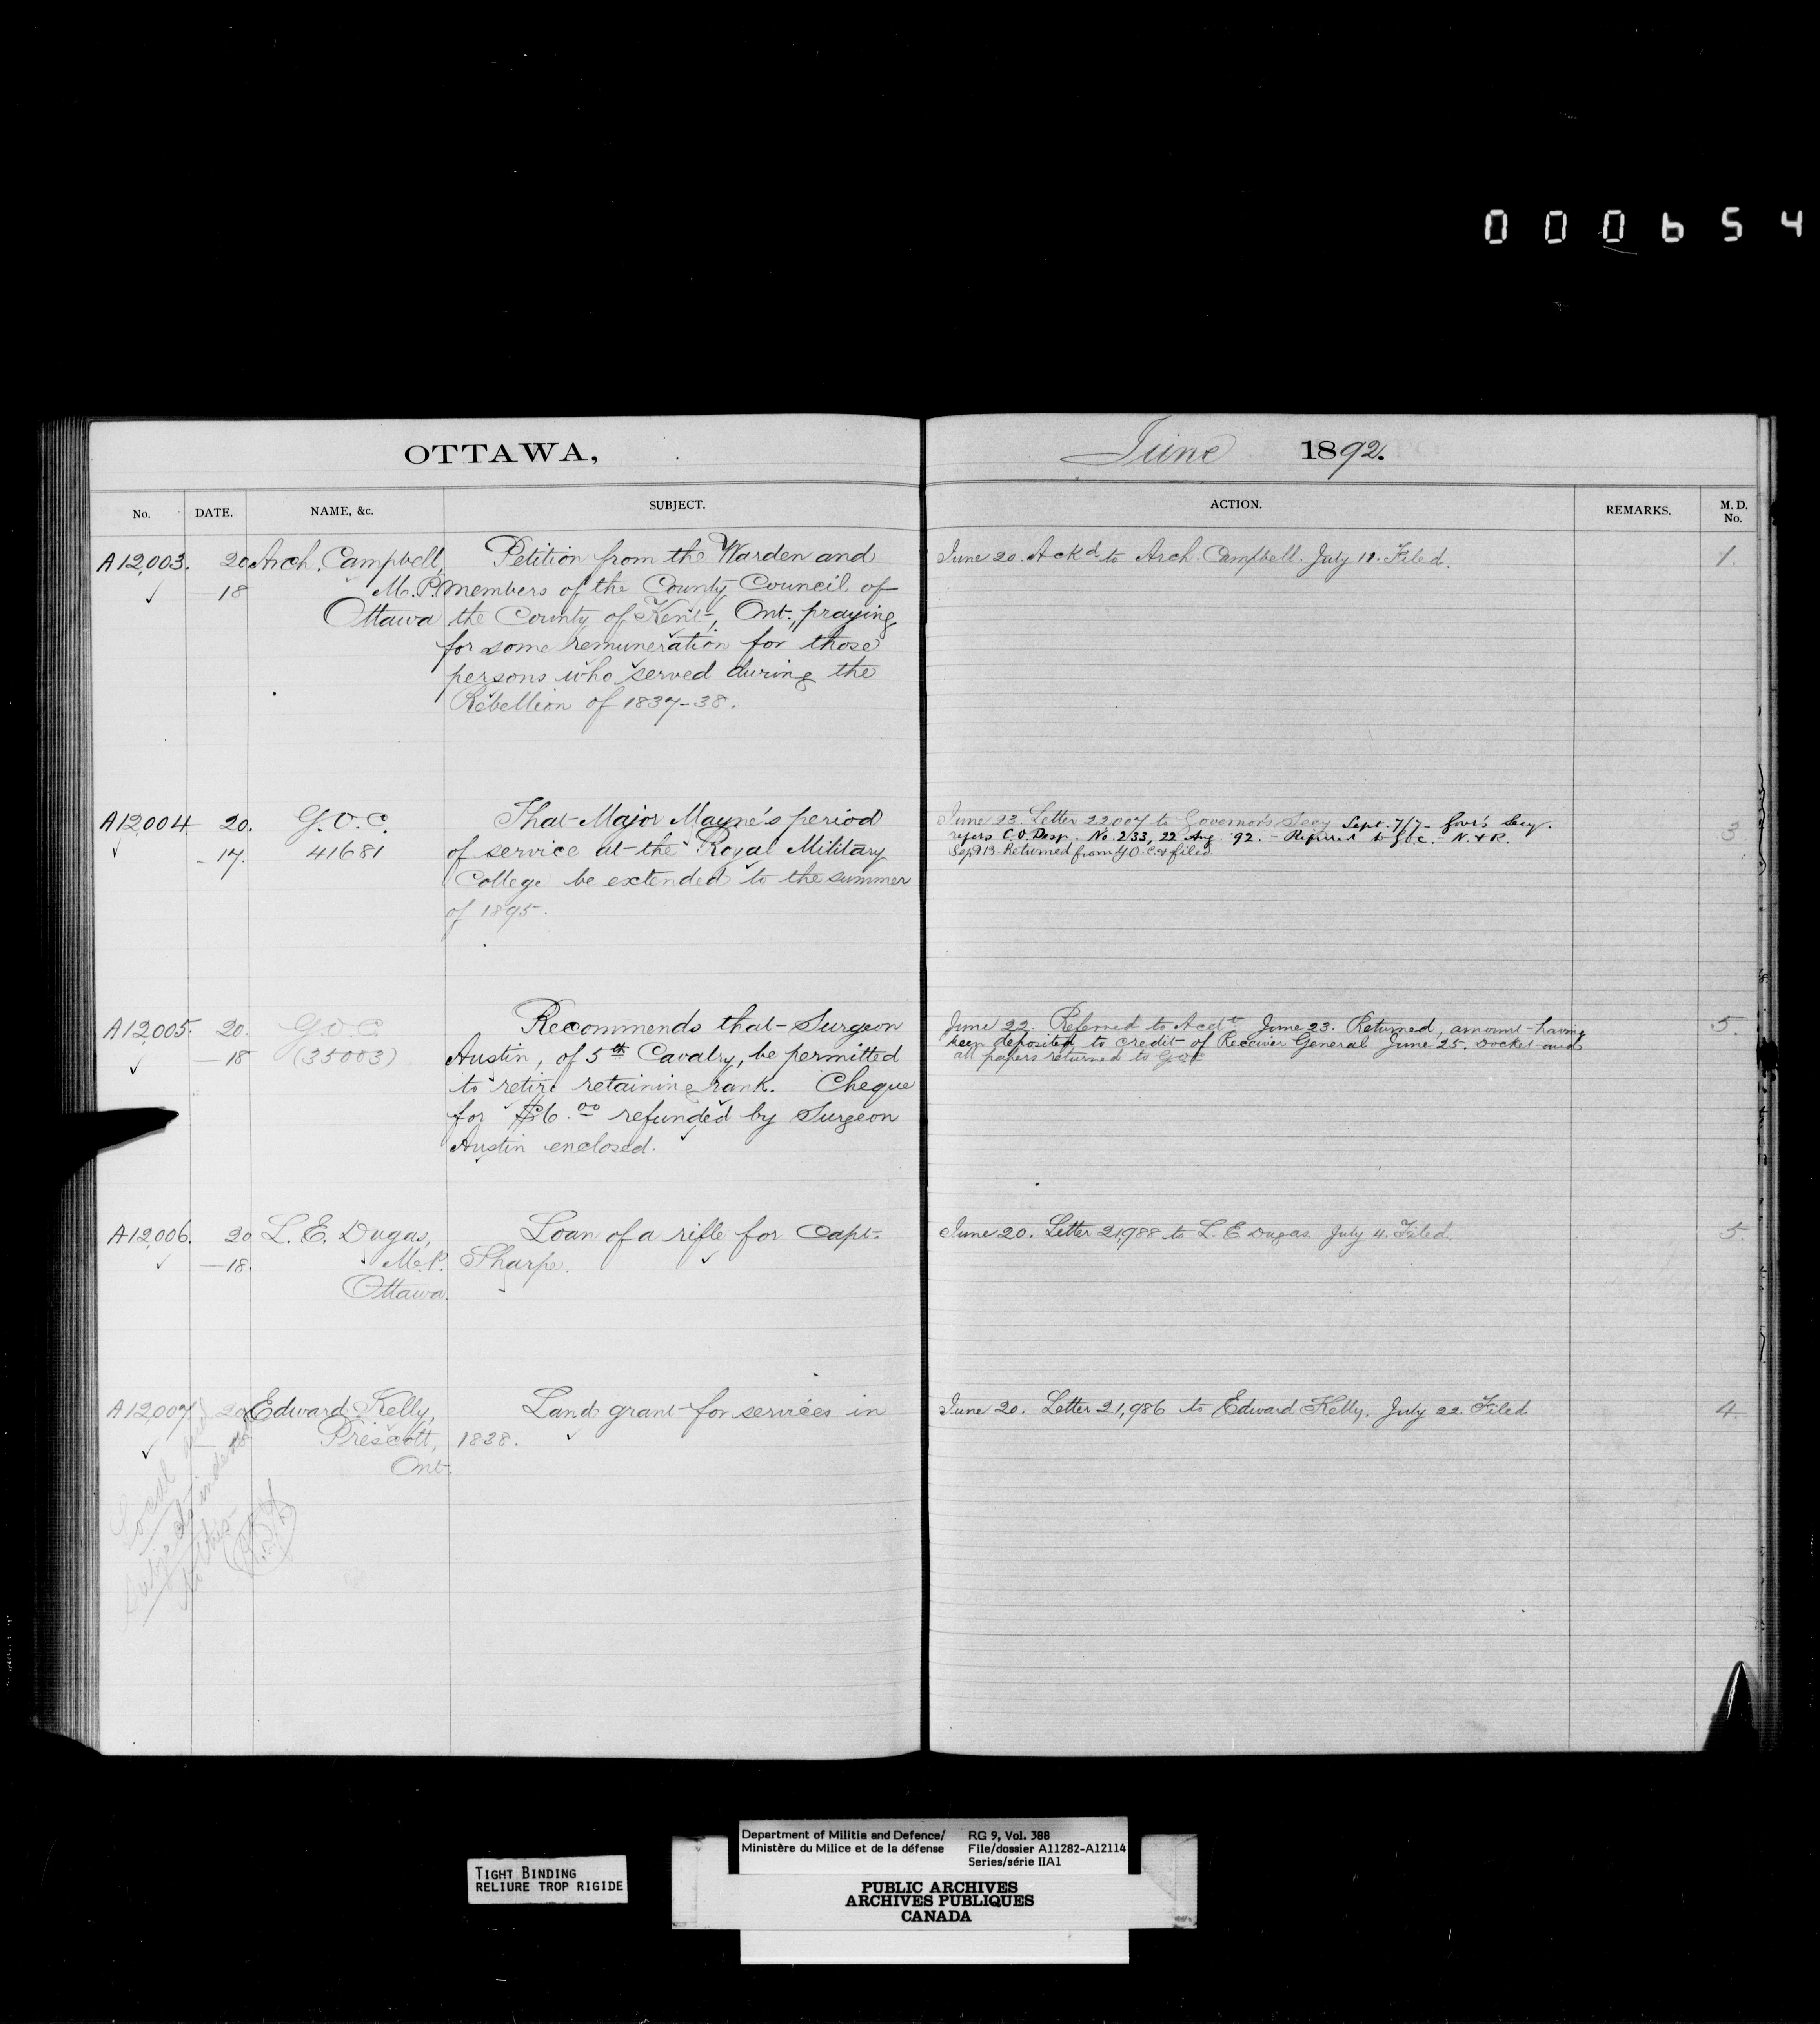 000654
OTTAWA,
June 1892.
No. DATE. NAME, &c. SUBJECT. ACTION. REMARKS. M. D. No.
A12,003. 20 Arch. Campbell, Petition from the Warden and
18 M.P. members of the County Council of
Ottawa the County of Kent, Ont., praying
for some remuneration for those
persons who served during the
Rebellion of 1837-38.
June 20. Ackd. to Arch. Campbell. July 11. Filed.
1.
A12,004. 20. G.O.C. That Major Mayne's period
17. 41681 of service at the Royal Military
College be extended to the summer
of 1895.
June 23. Letter 22,007 to Governor's Secy Sept. 7/7 - Gov's Secy.
refers C.O. Desp. No. 233, 22 Aug. '92. - Referred to G.O.C. N. & R.
Sept 13 Returned from G.O.C. & filed.
3
A12,005. 20. G.O.C. Recommends that Surgeon
18 (35003) Austin, of 5th Cavalry, be permitted
to retire retaining rank. Cheque
for $6.00 refunded by Surgeon
Austin enclosed.
June 22. Referred to Acct. June 23. Returned, amount having
been deposited to credit of Receiver General June 25. Docket and
all papers returned to GOC
5.
A12,006. 20 L. E. Dugas, Loan of a rifle for Capt.
18. M.P. Sharpe.
Ottawa.
June 20. Letter 21,988 to L. E Dugas. July 4. Filed.
5
A12,007 20 Edward Kelly, Land grant for services in
18 Prescott, 1838.
Ont.
June 20. Letter 21,986 to Edward Kelly. July 22 Filed
4
Local
Subjects indexed
to this
TIGHT BINDING
RELIURE TROP RIGIDE
Department of Militia and Defence/
Ministère du Milice et de la défense
RG 9, Vol. 388
File/dossier A11282-A12114
Series/série IIA1
PUBLIC ARCHIVES
ARCHIVES PUBLIQUES
CANADA